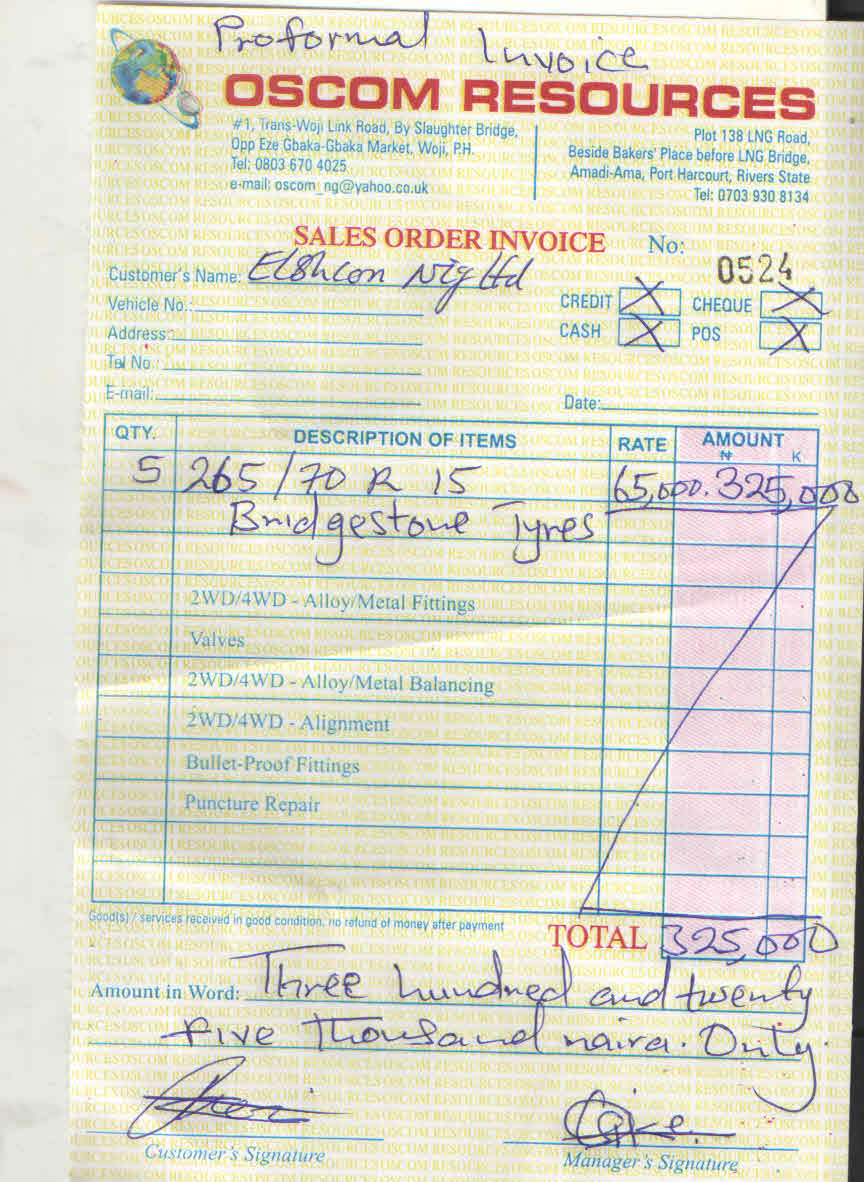 Proformal Invoice
OSCOM RESOURCES
#1, Trans-Woji Link Road, By Slaughter Bridge,
Opp Eze Gbaka-Gbaka Market, Woji, P.H.
Tel: 0803 670 4025
e-mail: oscom_ng@yahoo.co.uk
Plot 138 LNG Road,
Beside Bakers' Place before LNG Bridge,
Amadi-Ama, Port Harcourt, Rivers State
Tel: 0703 930 8134
SALES ORDER INVOICE No: 0524
Customer's Name: Elshcon Nig Ltd
Vehicle No.:
Address:
Tel No.:
E-mail:
CREDIT X CHEQUE X
CASH X POS X
Date:
QTY. DESCRIPTION OF ITEMS RATE AMOUNT
₦ K
5 265/70 R 15 65,000. 325,000
Bridgestone Tyres
2WD/4WD - Alloy/Metal Fittings
Valves
2WD/4WD - Alloy/Metal Balancing
2WD/4WD - Alignment
Bullet-Proof Fittings
Puncture Repair
Good(s) / services received in good condition, no refund of money after payment
TOTAL 325,000
Amount in Word: Three hundred and twenty
five thousand naira. Only.
Customer's Signature
Manager's Signature